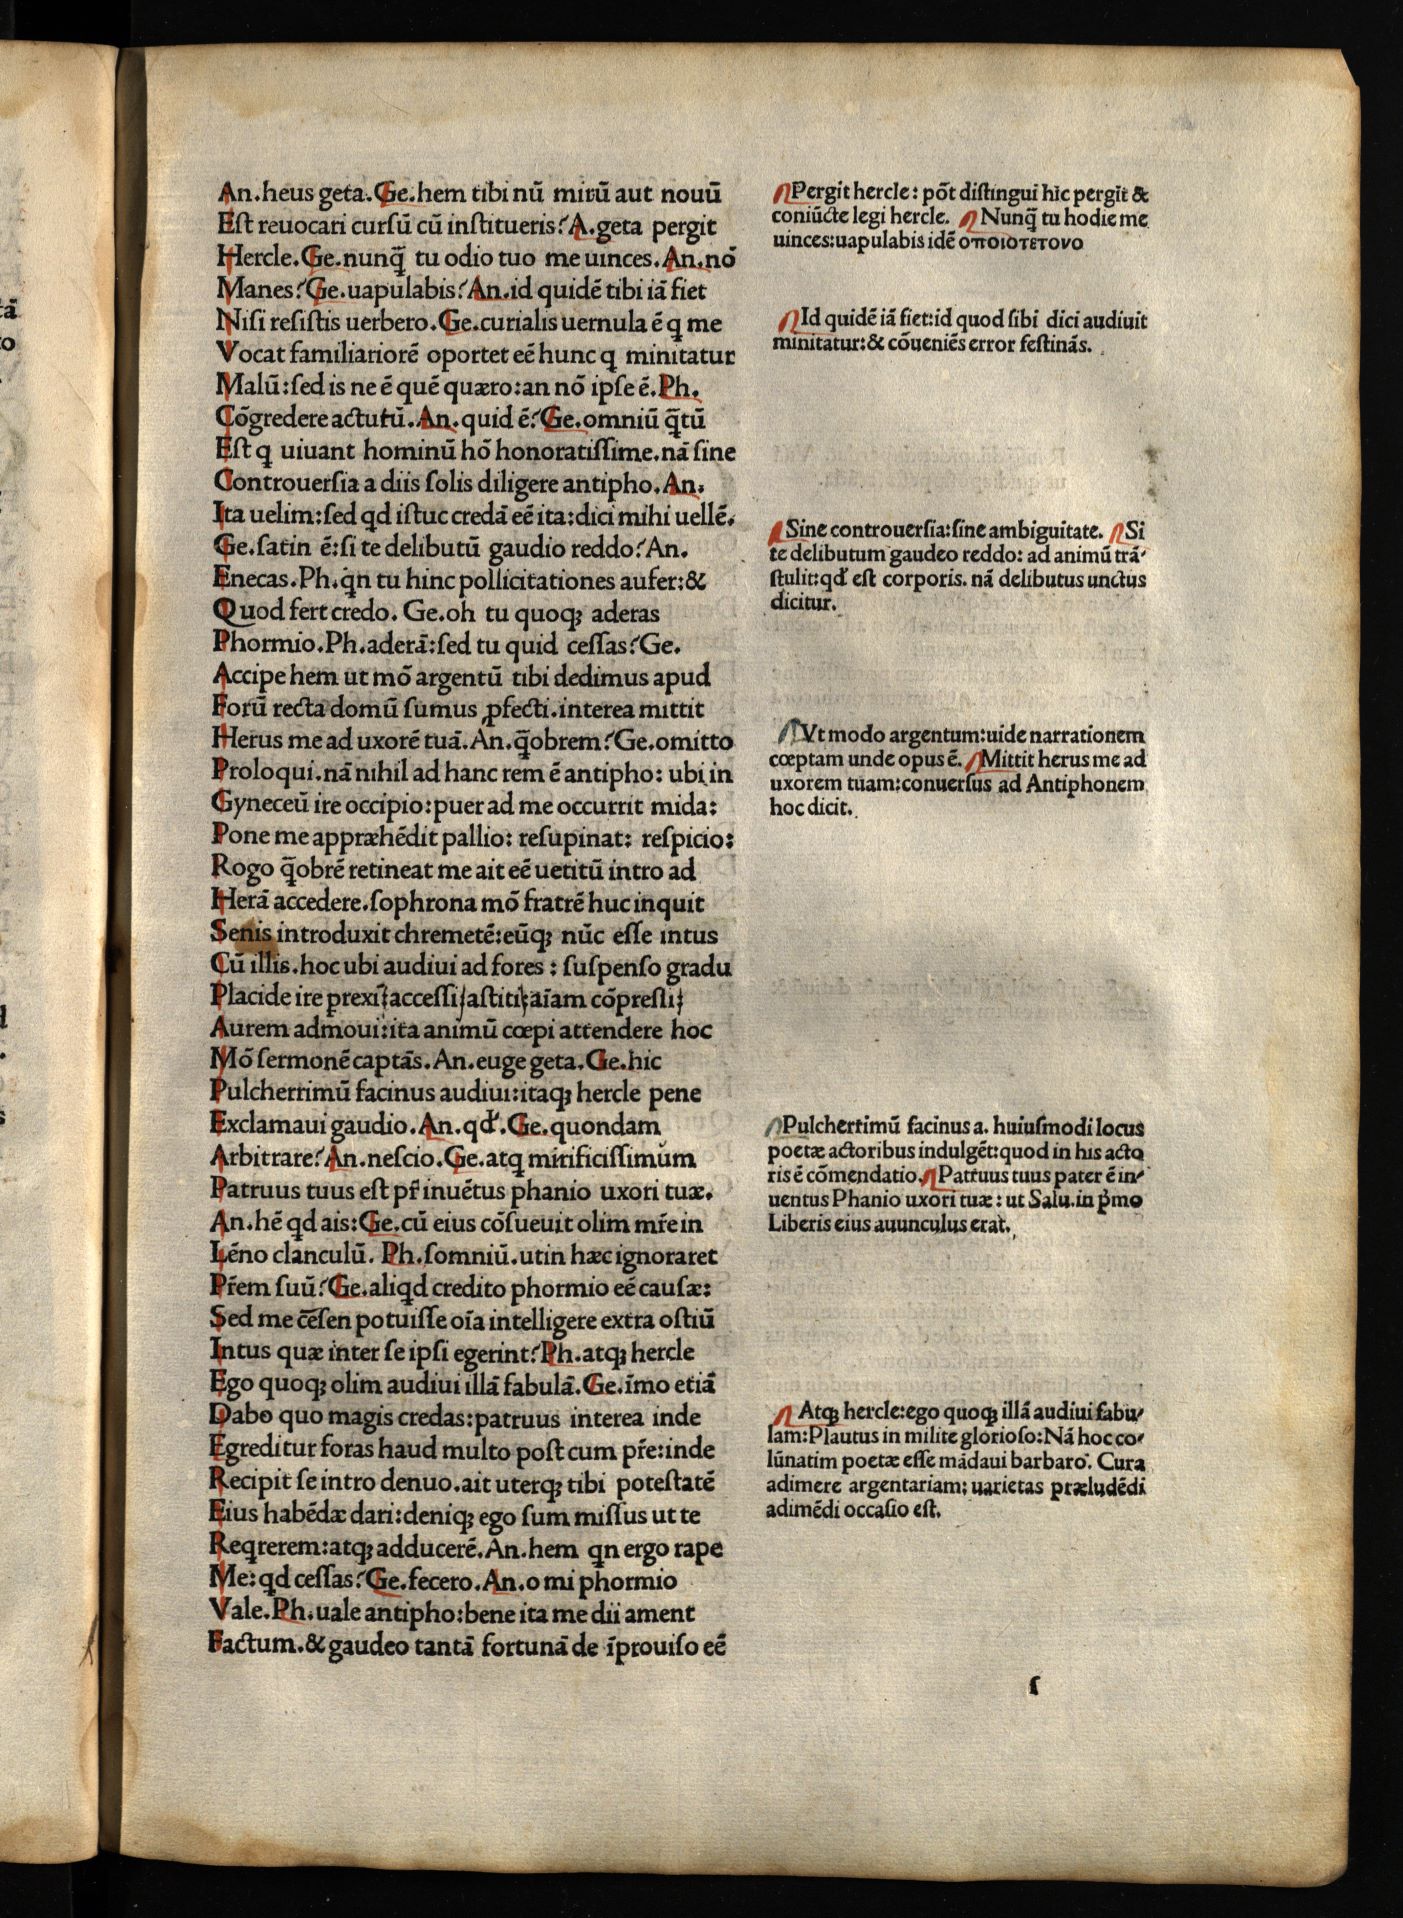 An.heus geta.Ge.hem tibi nū mirū aut nouū
Eſt reuocari curſū cū inſtitueris?A.geta pergit
Hercle.Ge.nunq̄ tu odio tuo me uinces.An.nō
Manes?Ge.uapulabis?An.id quidē tibi iā fiet
Niſi reſiſtis uerbero.Ge.curialis uernula ē q me
Vocat familiariorē oportet eē hunc q minitatur
Malū:ſed is ne ē quē quæro:an nō ipſe ē.Ph.
Cōgredere actutū.An.quid ē?Ge.omniū q̄tū
Eſt q uiuant hominū hō honoratiſſime.nā ſine
Controuerſia a diis ſolis diligere antipho.An.
Ita uelim:ſed qd iſtuc credā eē ita:dici mihi uellē.
Ge.ſatin ē:ſi te delibutū gaudio reddo?An.
Enecas.Ph.q̇n tu hinc pollicitationes aufer:&
Quod fert credo. Ge.oh tu quoqꝫ aderas
Phormio.Ph.aderā:ſed tu quid ceſſas?Ge.
Accipe hem ut mō argentū tibi dedimus apud
Forū recta domū ſumus ꝓfecti.interea mittit
Herus me ad uxorē tuā.An.q̄obrem?Ge.omitto
Proloqui.nā nihil ad hanc rem ē antipho: ubi in
Gyneceū ire occipio:puer ad me occurrit mida:
Pone me appræhēdit pallio: reſupinat: reſpicio:
Rogo q̄obrē retineat me ait eē uetitū intro ad
Herā accedere.ſophrona mō fratrē huc inquit
Senis introduxit chremetē:eūqꝫ nūc eſſe intus
Cū illis.hoc ubi audiui ad fores : ſuſpenſo gradu
Placide ire ꝑrexi:acceſſi:aſtiti:aīam cōpreſſi:
Aurem admoui:ita animū cœpi attendere hoc
Mō ſermonē captās.An.euge geta.Ge.hic
Pulcherrimū facinus audiui:itaqꝫ hercle pene
Exclamaui gaudio.An.qđ.Ge.quondam
Arbitrare?An.neſcio.Ge.atq mirificiſſimum
Patruus tuus eſt pr̄ inuētus phanio uxori tuæ.
An.hē qd ais:Ge.cū eius cōſueuit olim mr̄e in
Lēno clanculū. Ph.ſomniū.utin hæc ignoraret
Pr̄em ſuū?Ge.aliqd credito phormio eē cauſæ:
Sed me cēſen potuiſſe oīa intelligere extra oſtiū
Intus quæ inter ſe ipſi egerint?Ph.atqꝫ hercle
Ego quoqꝫ olim audiui illā fabulā.Ge.īmo etiā
Dabo quo magis credas:patruus interea inde
Egreditur foras haud multo poſt cum pr̄e:inde
Recipit ſe intro denuo.ait uterqꝫ tibi poteſtatē
Eius habēdæ dari:deniqꝫ ego ſum miſſus ut te
Reqrerem:atqꝫ adducerē.An.hem qn ergo rape
Me:qd ceſſas?Ge.fecero.An.o mi phormio
Vale.Ph.uale antipho:bene ita me dii ament
Factum.& gaudeo tantā fortunā de īprouiſo eē
Pergit hercle: pōt diſtingui hic pergit &
coniūcte legi hercle. Nunq̄ tu hodie me
uinces:uapulabis idē οποιοτετονο
Id quidē iā fiet:id quod ſibi dici audiuit
minitatur:& cōueniēs error feſtināſ.
Sine controuerſia:ſine ambiguitate. Si
te delibutum gaudeo reddo: ad animū trā-
ſtulit:qđ eſt corporis. nā delibutus unctus
dicitur.
Vt modo argentum:uide narrationem
cœptam unde opus ē. Mittit herus me ad
uxorem tuam:conuerſus ad Antiphonem
hoc dicit.
Pulcherrimū facinus a. huiuſmodi locus
poetæ actoribus indulgēt:quod in his acto
ris ē cōmendatio. Patruus tuus pater ē in-
uentus Phanio uxori tuæ: ut Salu.in p̄mo
Liberis eius auunculus erat.
Atqꝫ hercle:ego quoqꝫ illā audiui fabu-
lam:Plautus in milite glorioſo:Nā hoc co-
lūnatim poetæ eſſe mādaui barbaro. Cura
adimere argentariam: uarietas præludēdi
adimēdi occaſio eſt.
ſ